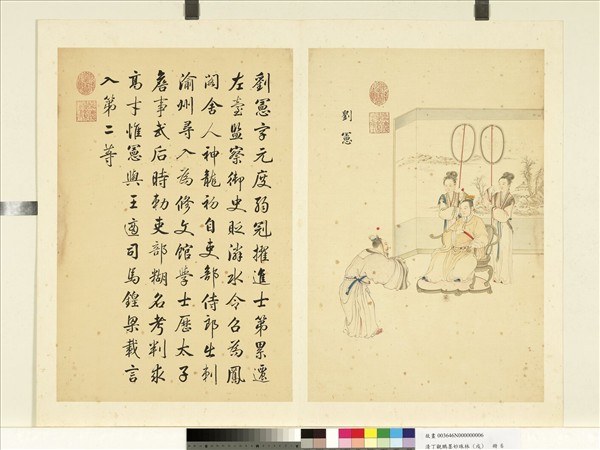 劉憲字元度弱冠擢進士第累遷
左臺監察御史貶潾水令召為鳳
閣舍人神龍初自吏部侍郎出刺
渝州尋入為修文館學士歷太子
詹事武后時勅吏部糊名考判求
高才惟憲與王適司馬鍠梁載言
入第二等
劉憲
故畫 003646N000000006
清丁觀鵬墨妙珠林（戌） 冊 6